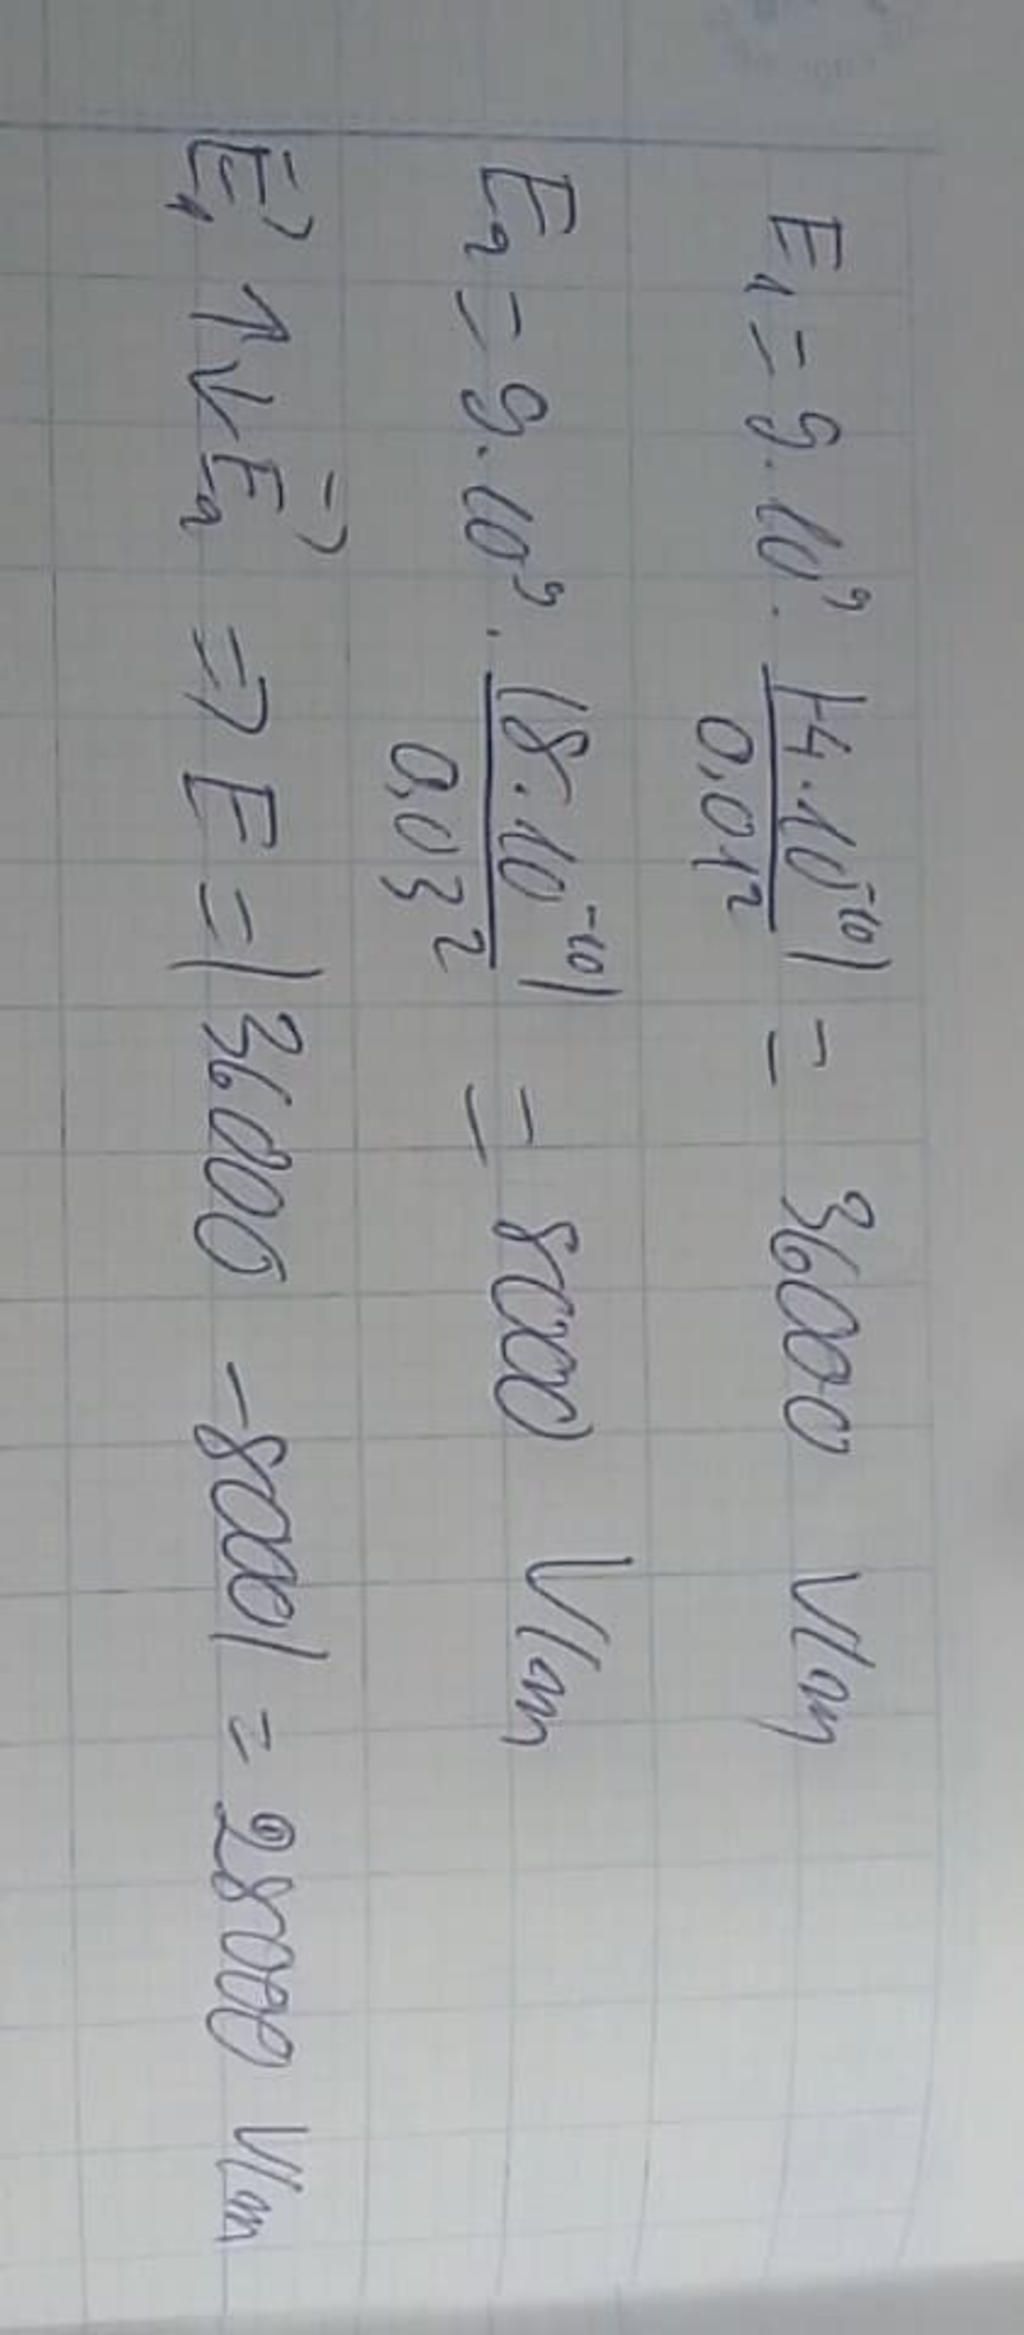 E₁ = 9.10⁹. |-4.10⁻¹⁰| / 0,01² = 36000 V/m
E₂ = 9.10⁹. |8.10⁻¹⁰| / 0,03² = 8000 V/m
E⃗₁ ↑↓ E⃗₂ => E = |36000 - 8000| = 28000 V/m